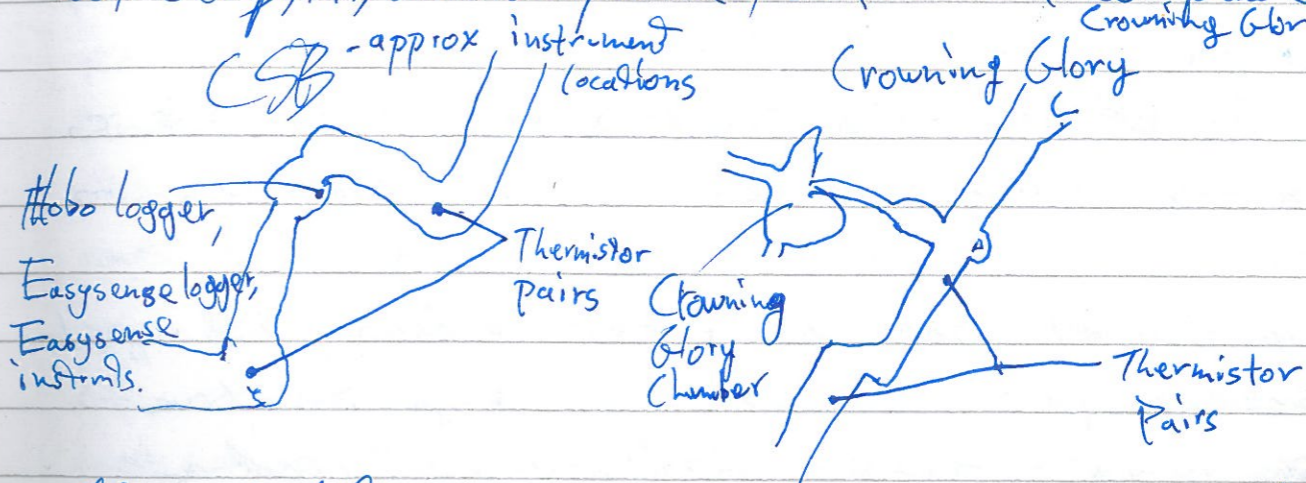 Crowning Glor
CSB - approx instrument
locations
Crowning Glory
Hobo logger,
Easysense logger,
Easysense
instrmts.
Thermistor
pairs
Crowning
Glory
Chamber
Thermistor
Pairs